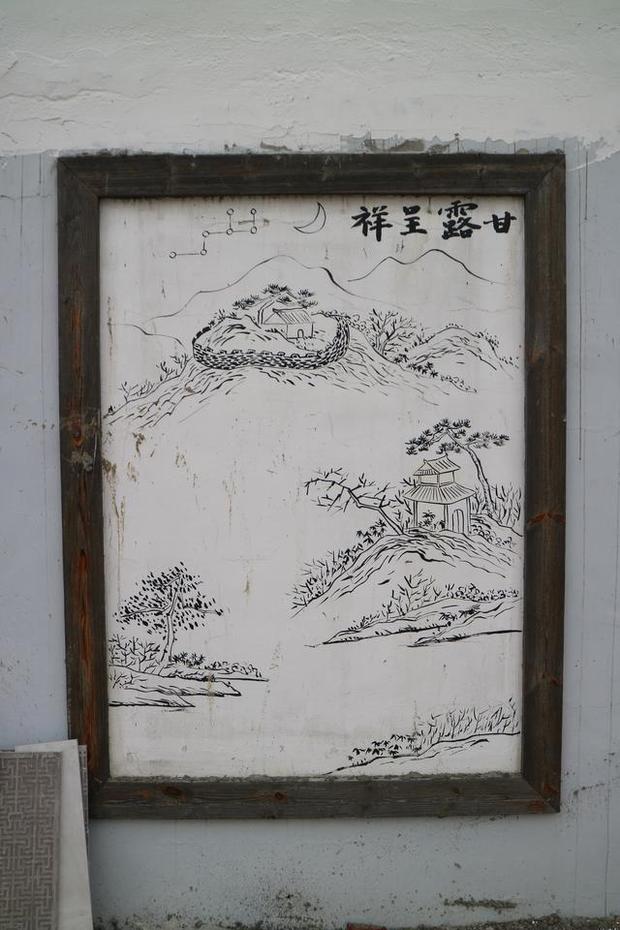 甘露呈祥